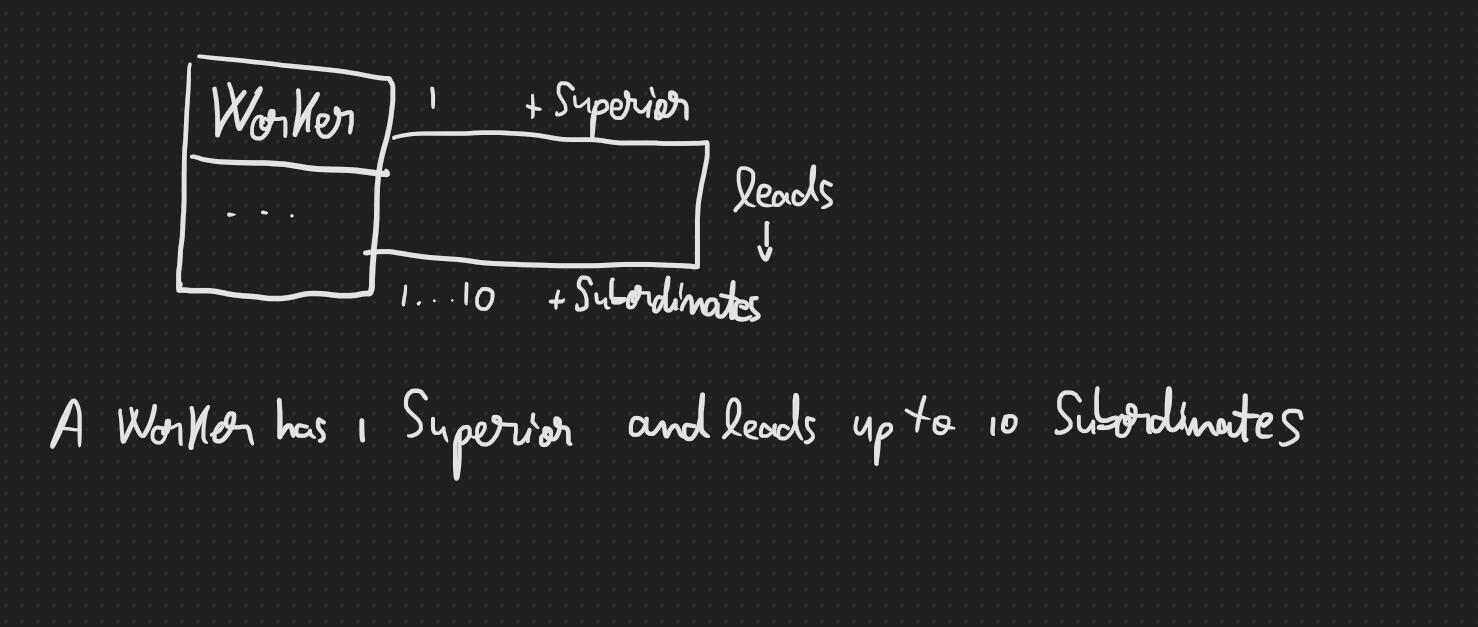 Worker
1 + Superior
. . .
leads
↓
1...10 + Subordinates
A Worker has 1 Superior and leads up to 10 Subordinates